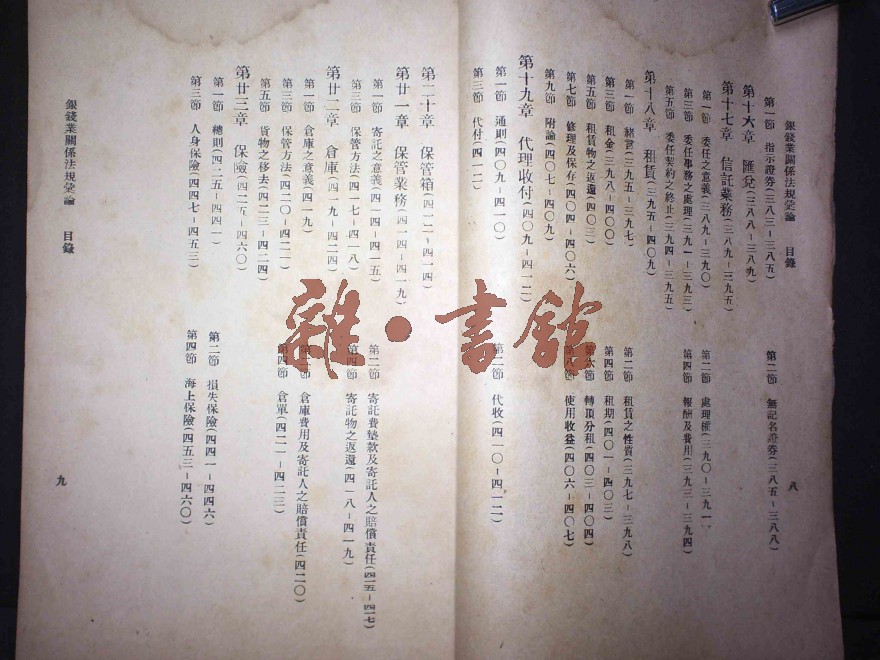 銀錢業關係法規彙論　目錄
八
第一節　指示證券(三八三–三八五)　第二節　無記名證券(三八五–三八八)
第十六章　匯兌(三八八–三八九)
第十七章　信託業務(三八九–三九五)
第一節　委任之意義(三八九–三九〇)　第二節　處理權(三九〇–三九一)
第三節　委任事務之處理(三九一–三九三)　第四節　報酬及費用(三九三–三九四)
第五節　委任契約之終止(三九四–三九五)
第十八章　租賃(三九五–四〇九)
第一節　緒言(三九五–三九七)　第二節　租賃之性質(三九七–三九八)
第三節　租金(三九八–四〇〇)　第四節　租期(四〇一–四〇三)
第五節　租賃物之返還(四〇三)　第六節　轉頂分租(四〇三–四〇四)
第七節　修理及保存(四〇四–四〇六)　第八節　使用收益(四〇六–四〇七)
第九節　附論(四〇七–四〇九)
第十九章　代理收付(四〇九–四一二)
第一節　通則(四〇九–四一〇)　第二節　代收(四一〇–四一二)
第三節　代付(四一二)
第二十章　保管箱(四一二–四一四)
第廿一章　保管業務(四一四–四一九)
第一節　寄託之意義(四一四–四一五)　第二節　寄託費墊款及寄託人之賠償責任(四一五–四一七)
第三節　保管方法(四一七–四一八)　第四節　寄託物之返還(四一八–四一九)
第廿二章　倉庫(四一九–四二四)
第一節　倉庫之意義(四一九)　第二節　倉庫費用及寄託人之賠償責任(四二〇)
第三節　保管方法(四二〇–四二一)　第四節　倉單(四二一–四二三)
第五節　貨物之移去(四二三–四二四)
第廿三章　保險(四二五–四六〇)
第一節　總則(四二五–四四一)　第二節　損失保險(四四一–四四六)
第三節　人身保險(四四七–四五三)　第四節　海上保險(四五三–四六〇)
銀錢業關係法規彙論　目錄
九
雜·書館